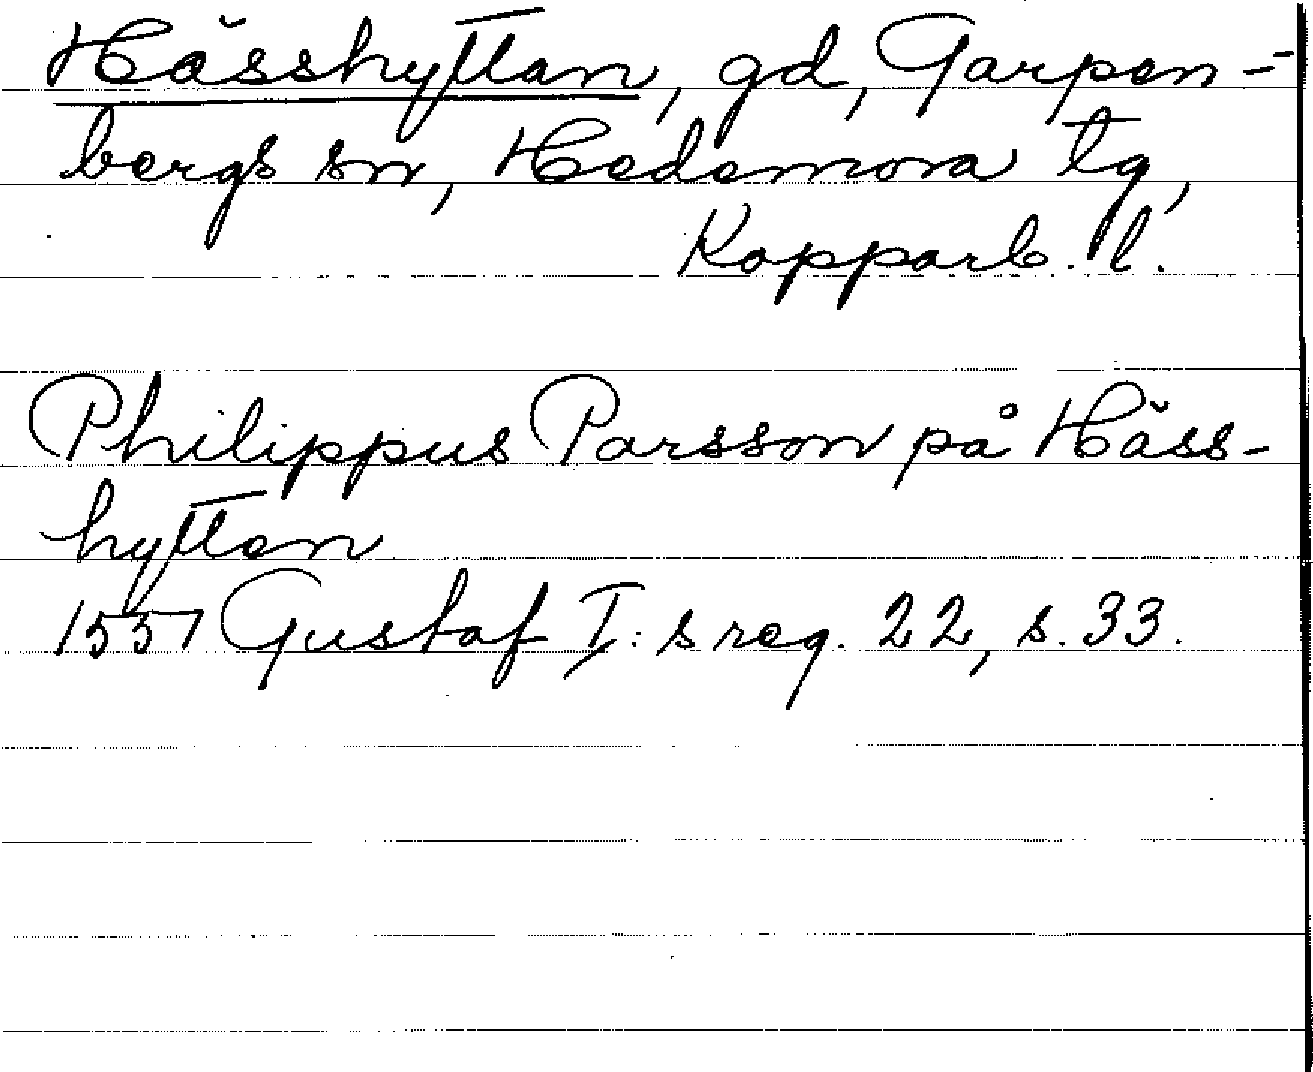 Hässhyttan, gd, Garpen-
bergs sn, Hedemora tg,
Kopparb. l.
Philippus Persson på Häss-
hyttan
1557 Gustaf I:s reg. 22, s. 33.